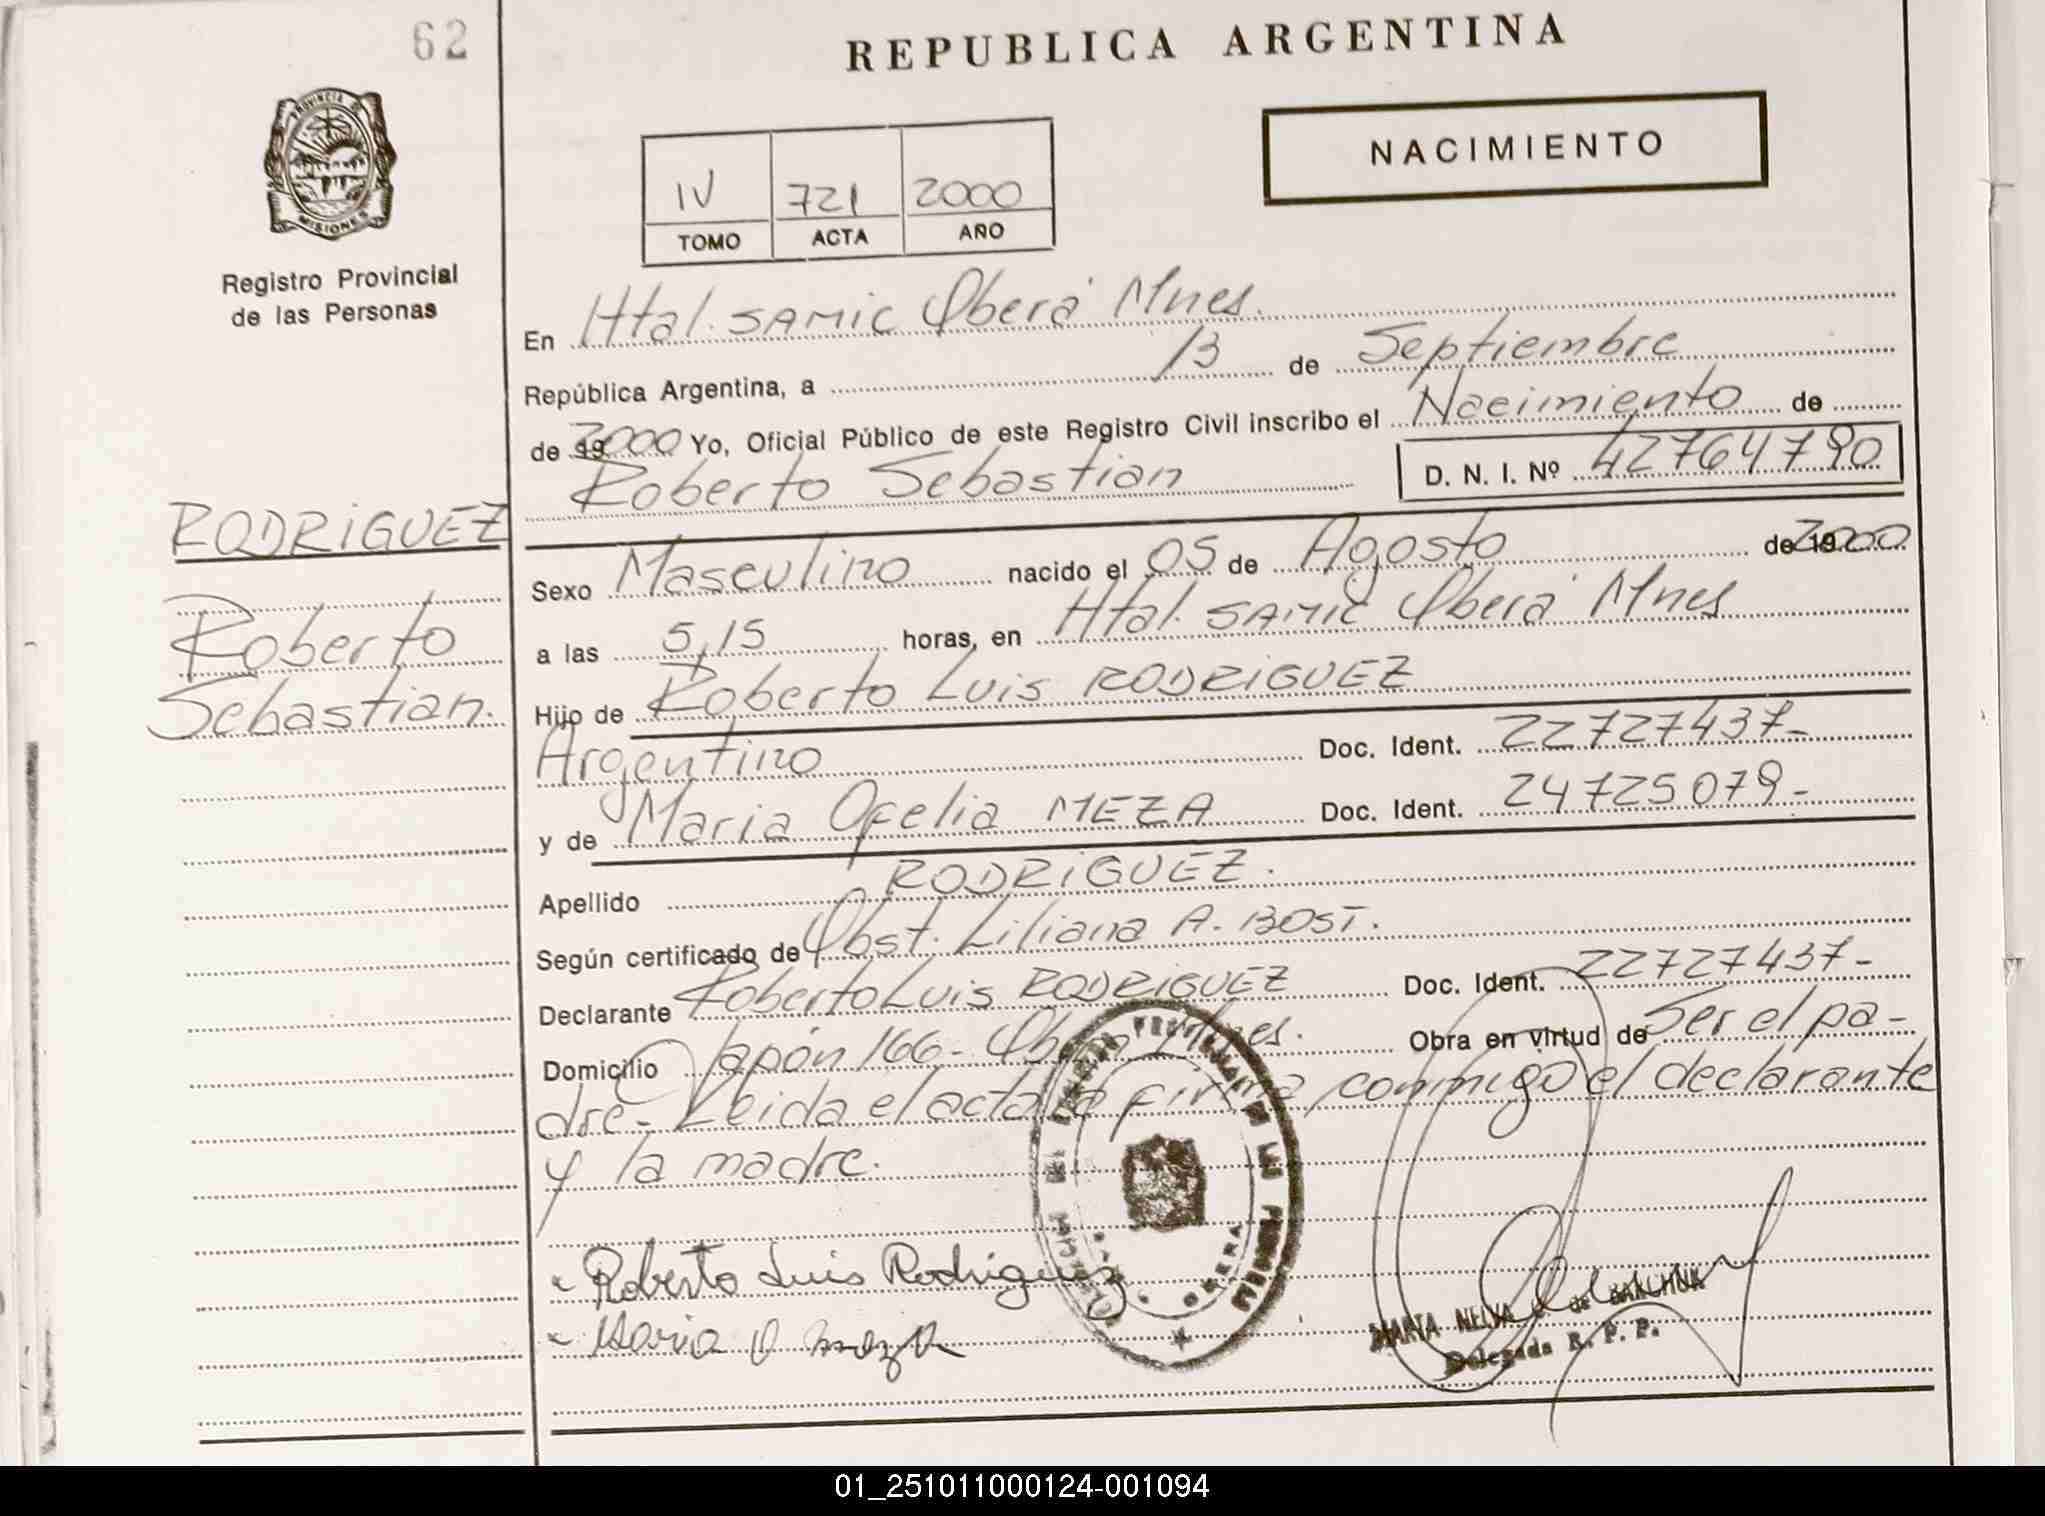 62
REPUBLICA ARGENTINA
PROVINCIA DE
MISIONES
Registro Provincial
de las Personas
NACIMIENTO
IV 721 2000
TOMO ACTA AÑO
En Htal. SAMIC Oberá Mnes.
República Argentina, a 13 de Septiembre
de 2000 Yo, Oficial Público de este Registro Civil inscribo el Nacimiento de
Roberto Sebastian D. N. I. Nº 42764790
RODRIGUEZ
Roberto
Sebastian.
Sexo Masculino nacido el 05 de Agosto de 2000
a las 5,15 horas, en Htal. SAMIC Oberá Mnes
Hijo de Roberto Luis RODRIGUEZ
Argentino Doc. Ident. 22727437-
y de Maria Ofelia MEZA Doc. Ident. 24725079-
Apellido RODRIGUEZ.
Según certificado de Obst. Liliana A. BOST.
Declarante Roberto Luis RODRIGUEZ Doc. Ident. 22727437-
Domicilio Japón 166- Oberá Mnes. Obra en virtud de Ser el pa-
dre- Leida el acta la firma conmigo el declarante
y la madre.
Roberto Luis Rodriguez
Maria O meza
OBERA
MARTA NELVA de
Delegada R. P. P.
01_251011000124-001094